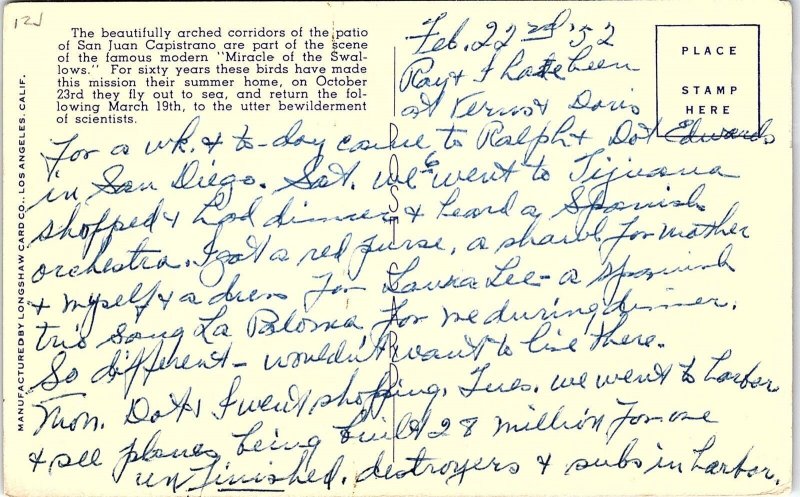 12J
The beautifully arched corridors of the patio
of San Juan Capistrano are part of the scene
of the famous modern "Miracle of the Swal-
lows." For sixty years these birds have made
this mission their summer home, on October
23rd they fly out to sea, and return the fol-
lowing March 19th, to the utter bewilderment
of scientists.
MANUFACTURED BY LONGSHAW CARD CO., LOS ANGELES, CALIF.
POST CARD
PLACE
STAMP
HERE
Feb. 22nd '52
Ray & I have been
at Verns & Doris
for a wk. & to-day came to Ralph & Dot Edwards
in San Diego. Sat. we went to Tijuana
shopped & had dinner & heard a Spanish
orchestra. I got a red purse, a shawl for mother
& myself & a dress for Laura Lee - a Spanish
trio sang La Paloma for me during dinner.
So different - wouldn't want to live there.
Mon. Dot & I went shopping. Tues. we went to harbor
& see planes being built 28 million for one
unfinished. destroyers & subs in harbor.